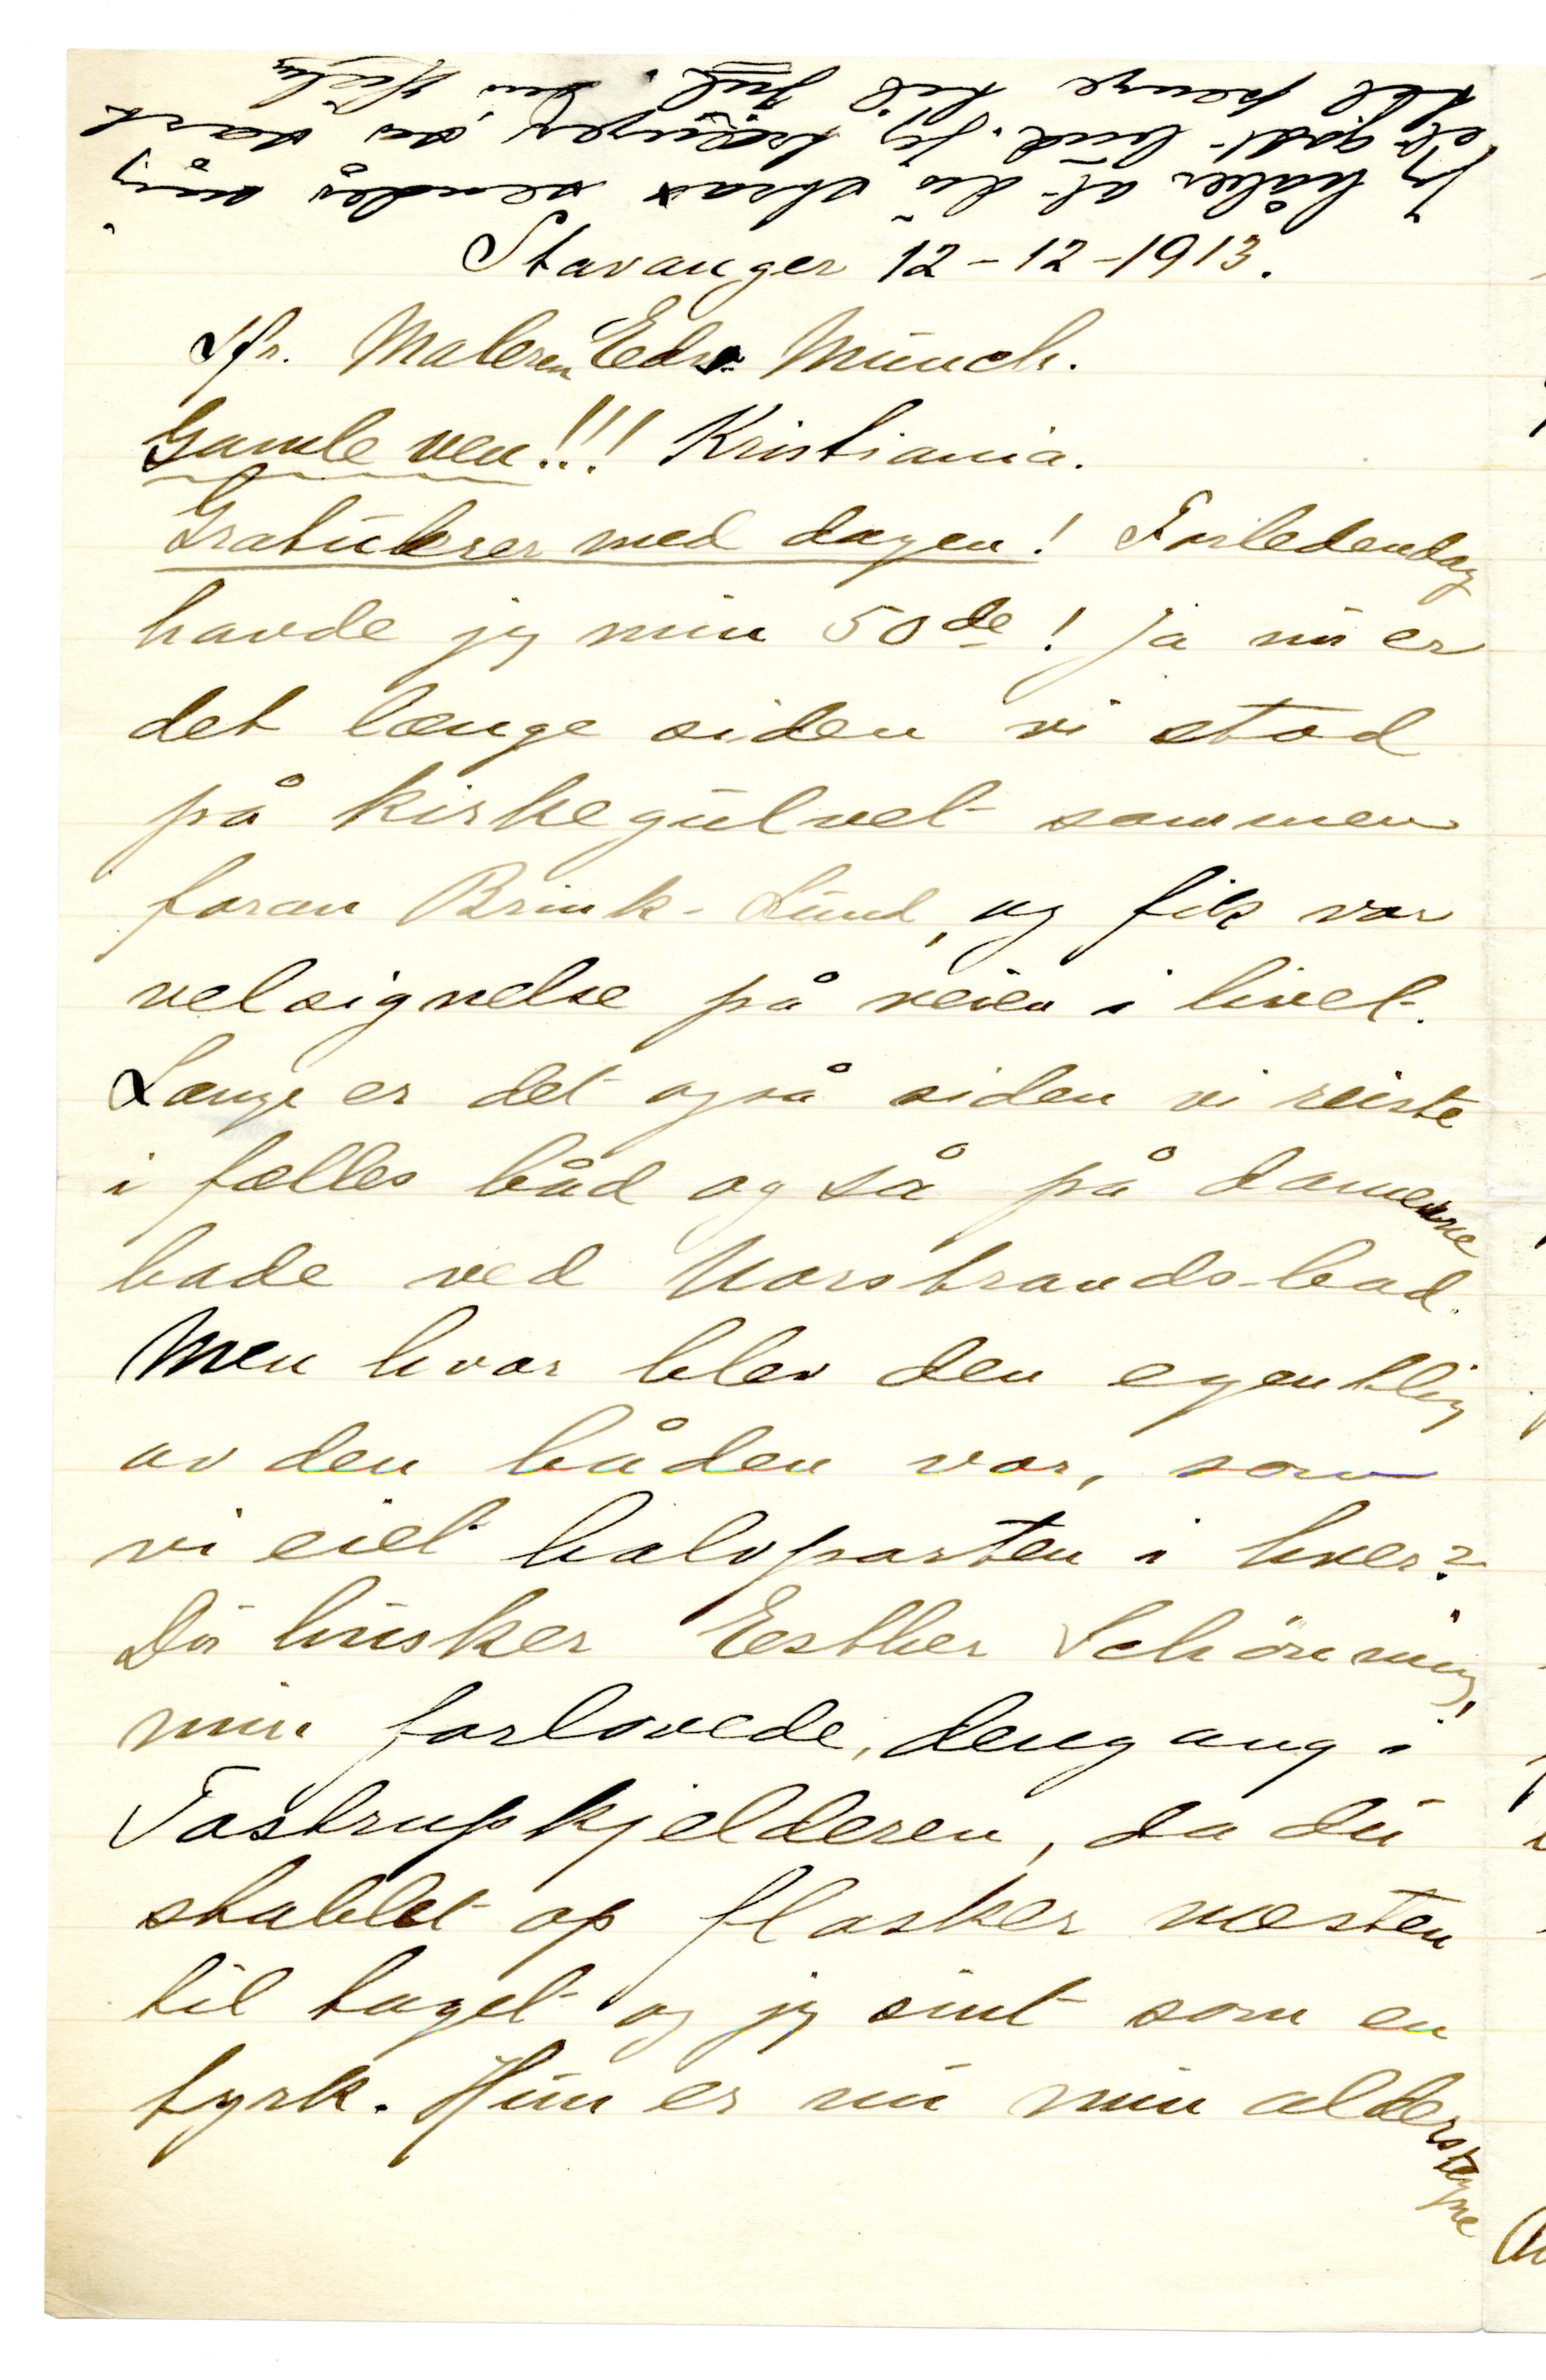 Stavanger 12-12-1913.
Hr. Maleren Edv. Münch.
Gamle ven!!! Kristiania.
Gratulerer med dagen! Forledendag
havde jeg min 50de! Ja nu er
det længe siden vi stod
på kirkegulvet sammen
foran Brink-Lund, og fik vor
velsignelse på veien i livet.
Længe er det også siden vi reiste
i fælles båd og så på damerne
bade ved Norstrands-bad.
Men hvor blev den egentlig
av den båden vor, som
vi eiet halvparten i hver?
Du husker Esther Schønning,
min forlovede, dengang i
Tostrupkjelderen, da du
stablet op flasker næsten
til taget og jeg sint som en
tyrk. Hun er nu min alderstegne
Jeg håber at du straks sender mig
et godt bud. Jeg trænger så sart
til penge til Jul. Din